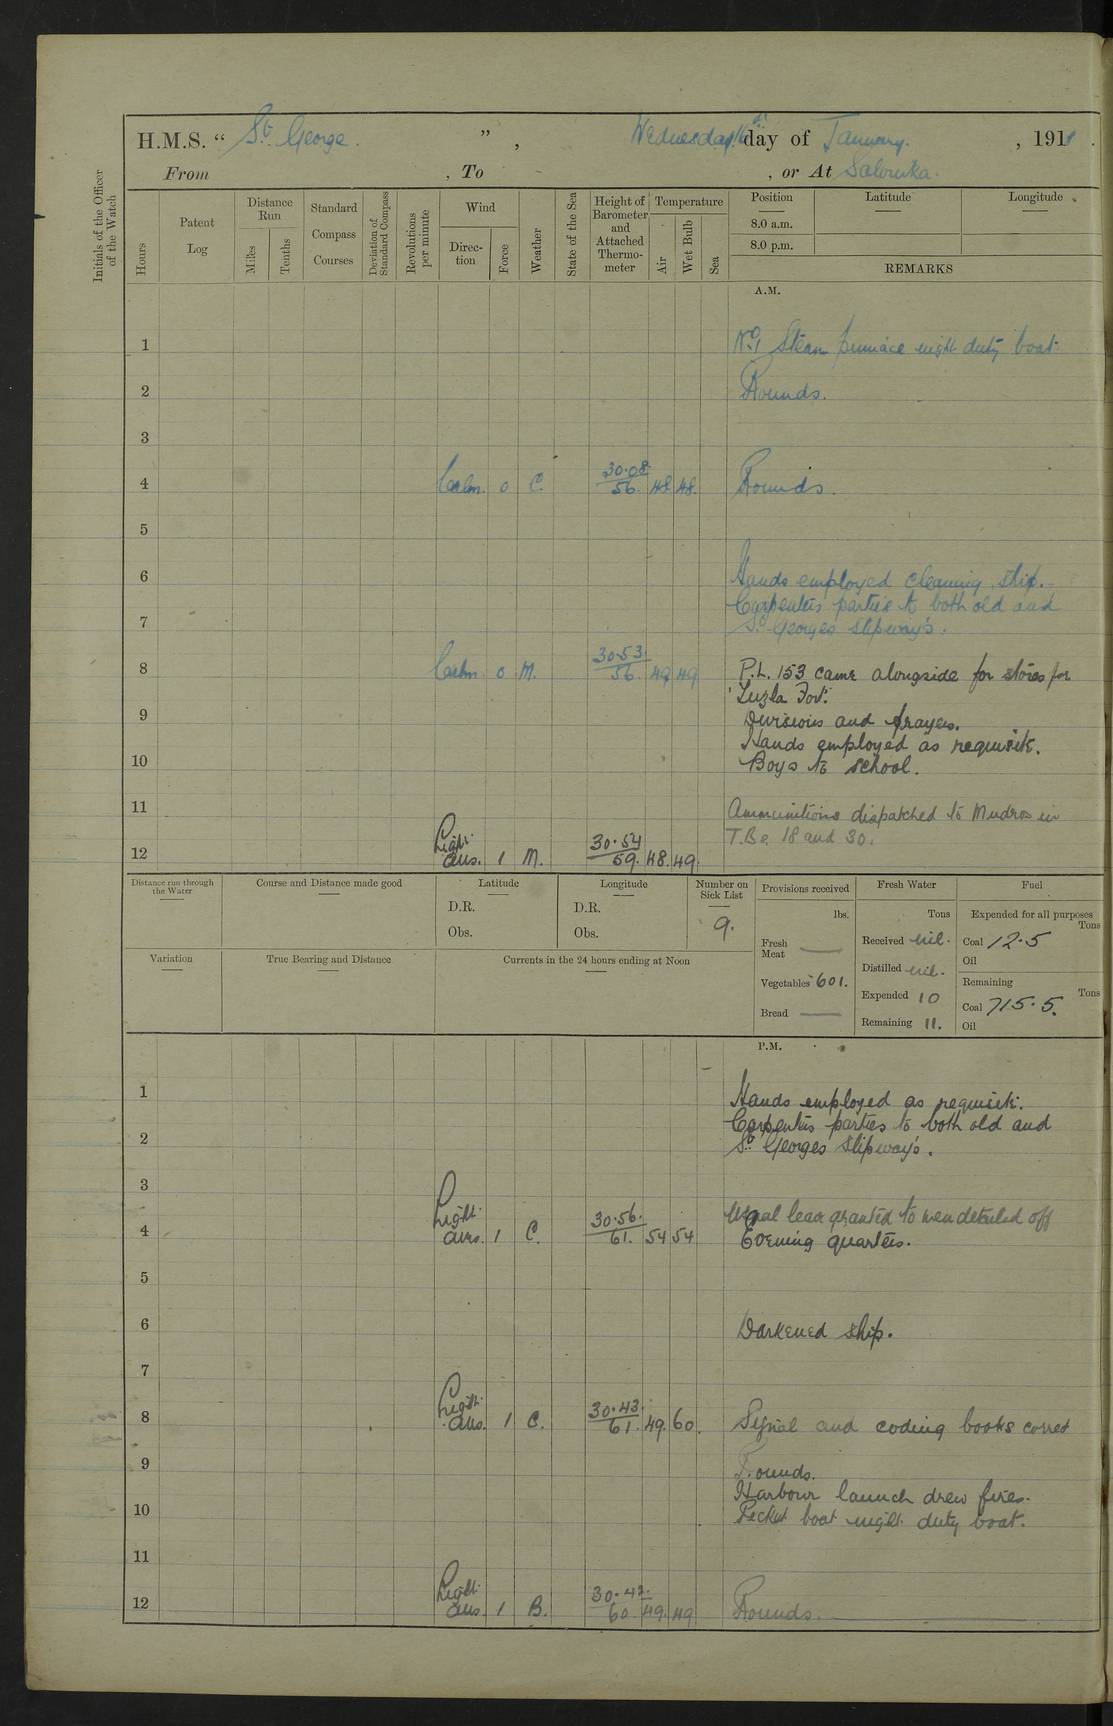 H.M.S. " St. George. ", Wednesday 16th day of January. , 1918.
From , To , or At Salonika.
Initials of the Officer of the Watch
Hours
Patent Log
Distance Run
Miles
Tenths
Standard Compass Courses
Deviation of Standard Compass
Revolutions per minute
Wind
Direction
Force
Weather
State of the Sea
Height of Barometer and Attached Thermometer
Temperature
Air
Wet Bulb
Sea
Position
Latitude
Longitude
8.0 a.m.
8.0 p.m.
REMARKS
A.M.
1 No. 1 Steam pinnace night duty boat
2 Rounds.
3
4 Calm. 0 C. 30.08. 56. 48 48. Rounds.
5
6 Hands employed cleaning ship.
Carpenters parties to both old and
7 St. Georges slipway's.
8 Calm 0 M. 30.53. 56. 49 49 P.L. 153 came alongside for stores for
Tuzla Fort.
9 Divisions and prayers.
Hands employed as requisite.
10 Boys to school.
11 Ammunitions dispatched to Mudros in
12 Light airs. 1 M. 30.54 59. 48. 49. T.Bs. 18 and 30.
Distance run through the Water
Course and Distance made good
Latitude
D.R.
Obs.
Longitude
D.R.
Obs.
Number on Sick List
9.
Provisions received
lbs.
Fresh Meat —
Vegetables 601.
Bread —
Fresh Water
Tons
Received nil.
Distilled nil.
Expended 10
Remaining 11.
Fuel
Expended for all purposes
Tons
Coal 12.5
Oil
Remaining
Tons
Coal 715.5.
Oil
Variation
True Bearing and Distance
Currents in the 24 hours ending at Noon
P.M.
1 Hands employed as requisite.
Carpenters parties to both old and
2 St. Georges slipway's.
3
Usual leave granted to men detailed off
4 Light airs. 1 C. 30.56. 61. 54 54 Evening quarters.
5
6 Darkened ship.
7
8 Light airs. 1 C. 30.43. 61. 49. 60. Signal and coding books correct
9 Rounds.
Harbour launch drew fires.
10 Picket boat night duty boat.
11
12 Light airs 1 B. 30.42. 60. 49. 49 Rounds.